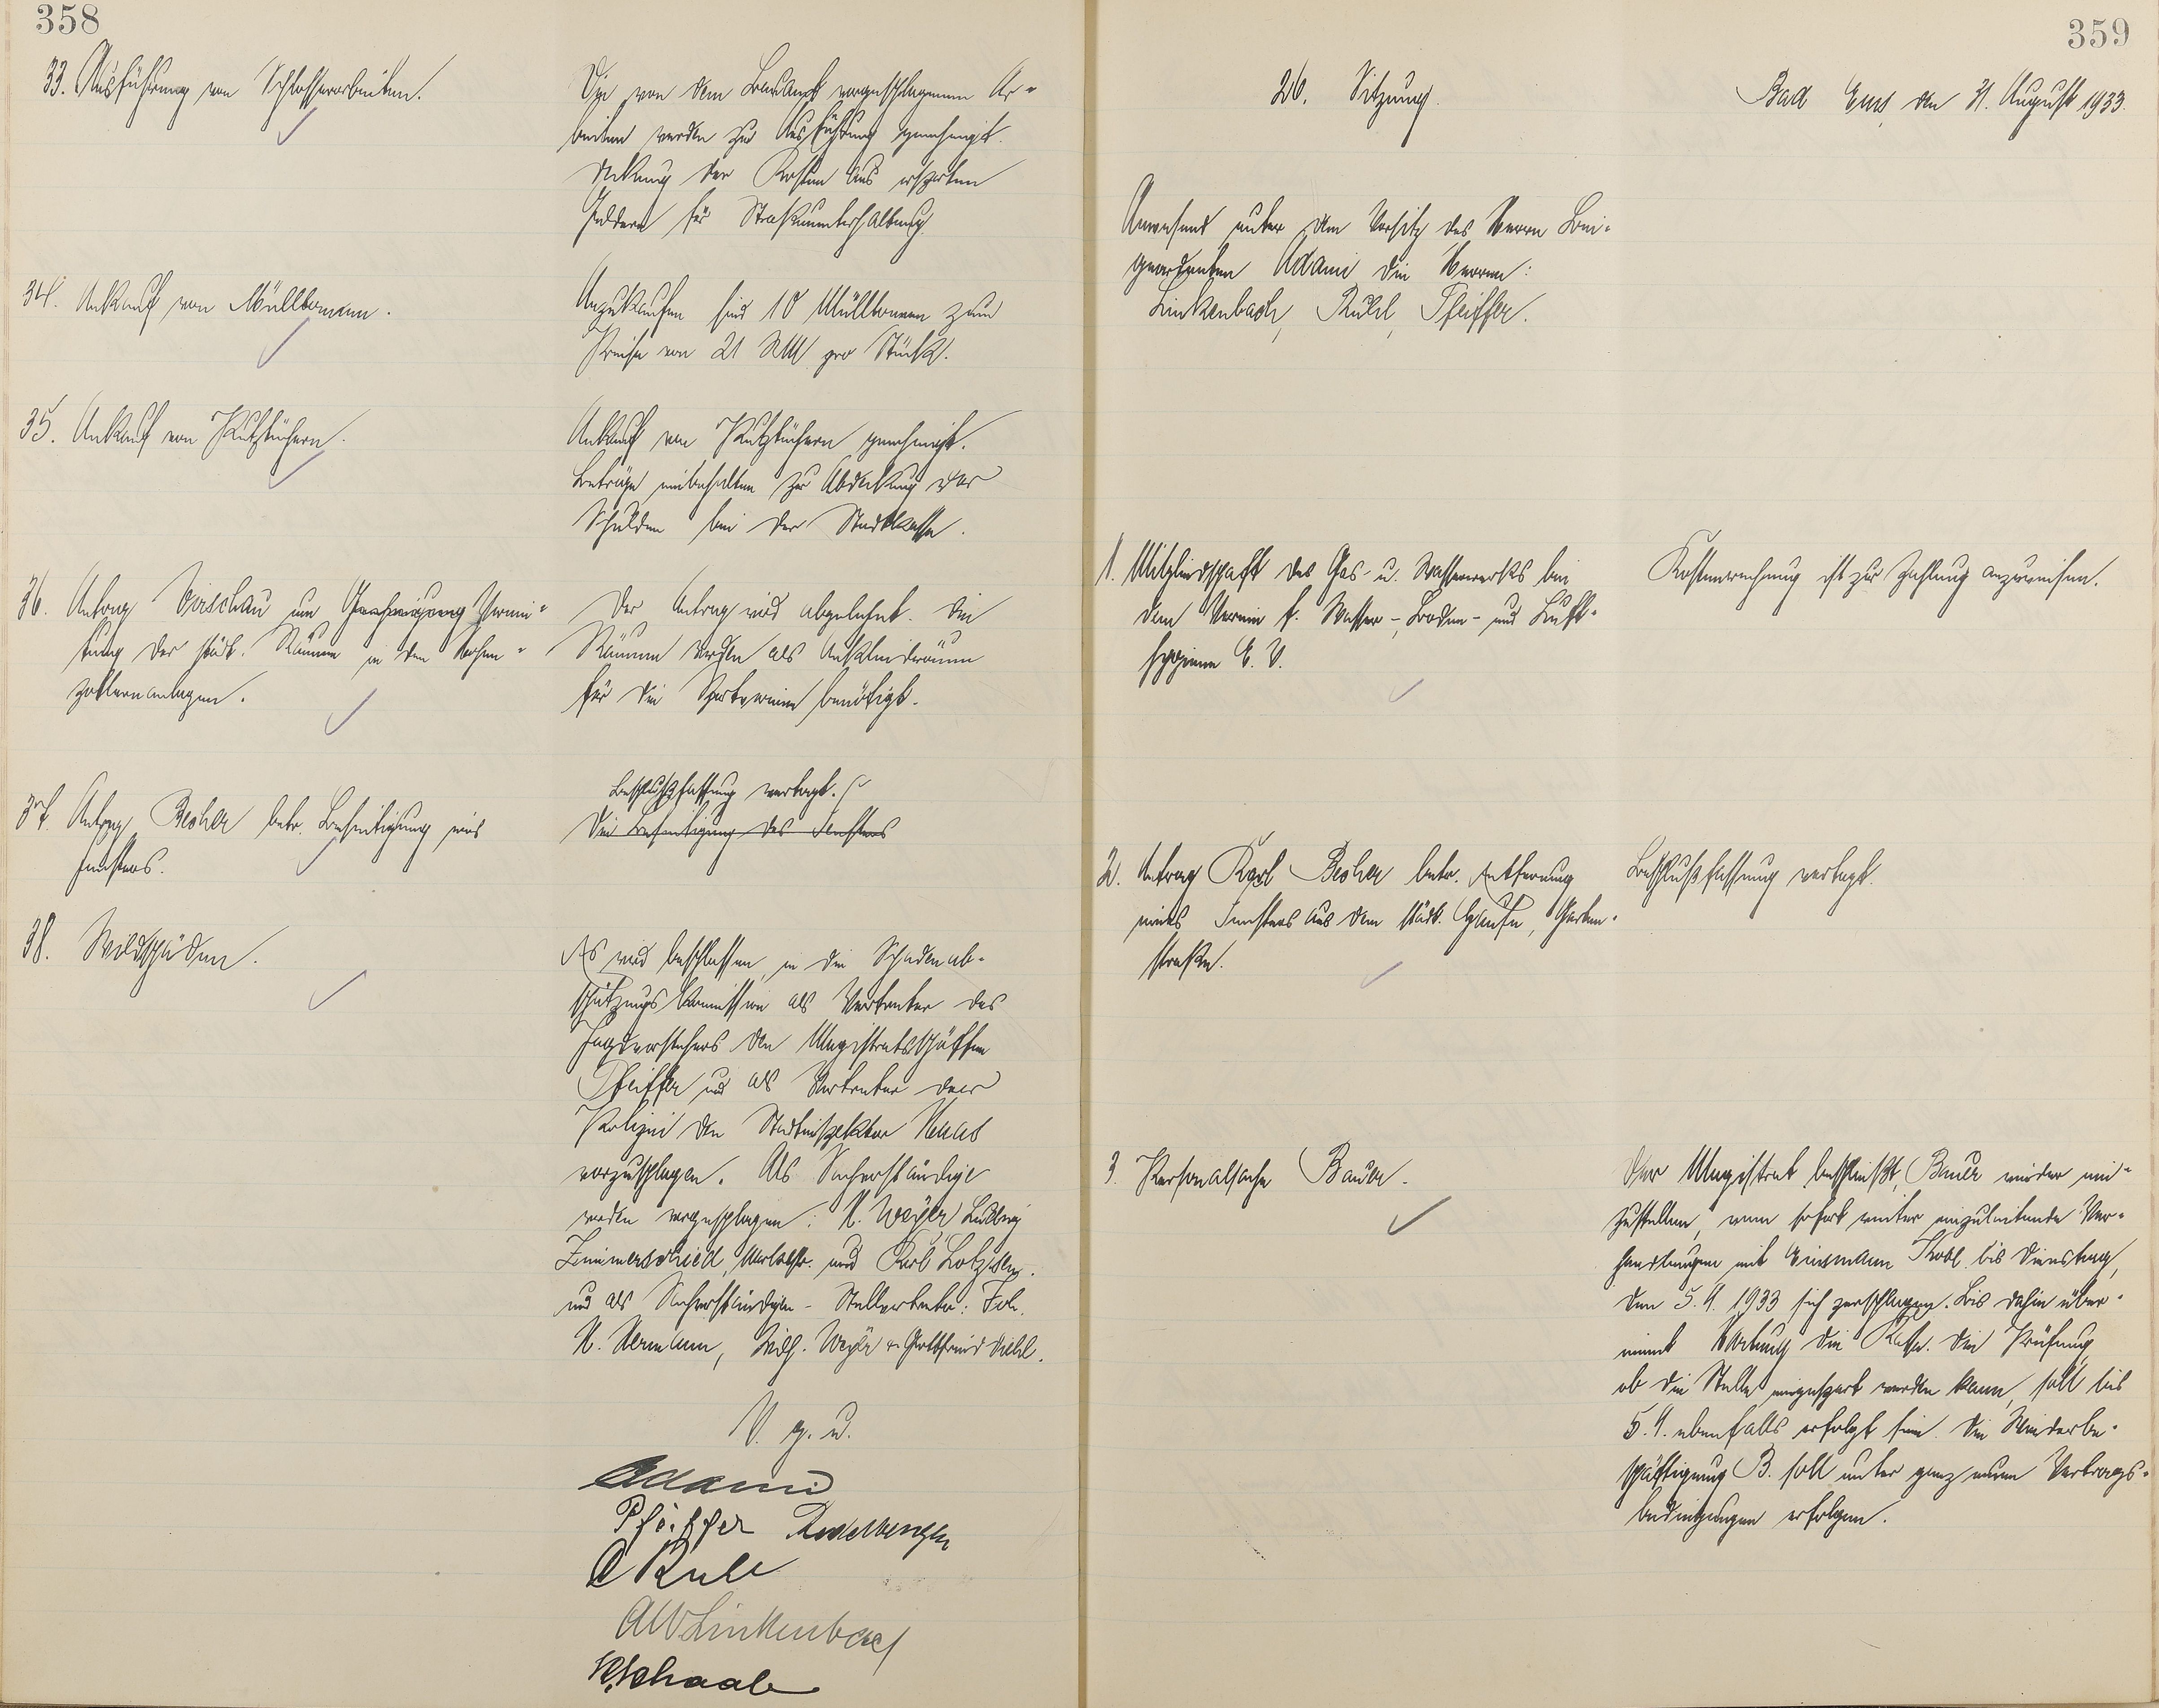 358
33. Ausführung von Schlosserarbeiten.
Die von dem Bauamt vorgeschlagenen Ar-
beiten werden zur Ausführung genehmigt.
Deckung der Kosten aus ersparten
Geldern für Straßenunterhaltung
34. Ankauf von Mülltonnen.
Anzukaufen sind 10 Mülltonnen zum
Preise von 21 RM pro Stück.
35. Ankauf von Putztüchern.
Ankauf von Putztüchern genehmigt.
Beträge einbehalten zur Abdeckung der
Schulden bei der Stadtkasse.
36. Antrag Virschau um Genehmigung Vermie-
tung der städt. Räume in den Hohen-
zollernanlagen.
Der Antrag wird abgelehnt. Die
Räume werden als Ankleideräume
für die Sportvereine benötigt.
37. Antrag Becher betr. Beseitigung eines
Fensters.
Beschlußfassung vertagt.
Die Beseitigung des Fensters
38. Wildschäden.
Es wird beschlossen, in die Schadenab-
schätzungskommission als Vertreter des
Jagdvorstehers den Magistratsschöffen
Pfeiffer und als Vertreter der
Polizei den Stadtinspektor
vorzuschlagen. Als Sachverständige
werden vorgeschlagen: H. Weyer, Ludwig
Zimmerschied, und Karl
und als Sachverständigen-Stellvertreter: Joh.
H. Hermann, Wilh. Weyer u. Gottfried Diehl.
V. g. u.
Adami
Pfeiffer
C Ruhl
AW Linkenbach
Schaab
359
26. Sitzung.
Bad Ems, den 31. August 1933.
Anwesend unter dem Vorsitz des Herrn Bei-
geordneten Adami die Herren:
Linkenbach, Ruhl, Pfeiffer.
1. Mitgliedschaft des Gas- u. Wasserwerks bei
dem Verein f. Wasser-, Boden- und Luft-
hygiene E. V.
Kostenrechnung ist zur Zahlung anzuweisen.
2. Antrag Karl Becher betr. Entfernung
eines Fensters aus dem städt. Hause, Garten-
straße.
Beschlußfassung vertagt.
3. Personalsache Bauer.
Der Magistrat beschließt, Bauer wieder ein-
zustellen, wenn sofort weiter einzuleitende Ver-
handlungen mit bis Dienstag,
den 5.9.1933 sich zerschlagen. Bis dahin über-
nimmt Hartung die Kasse. Die Prüfung,
ob die Stelle eingespart werden kann, soll bis
5.9. ebenfalls erfolgt sein. Die Wiederbe-
schäftigung B. soll unter ganz neuen Vertrags-
bedingungen erfolgen.